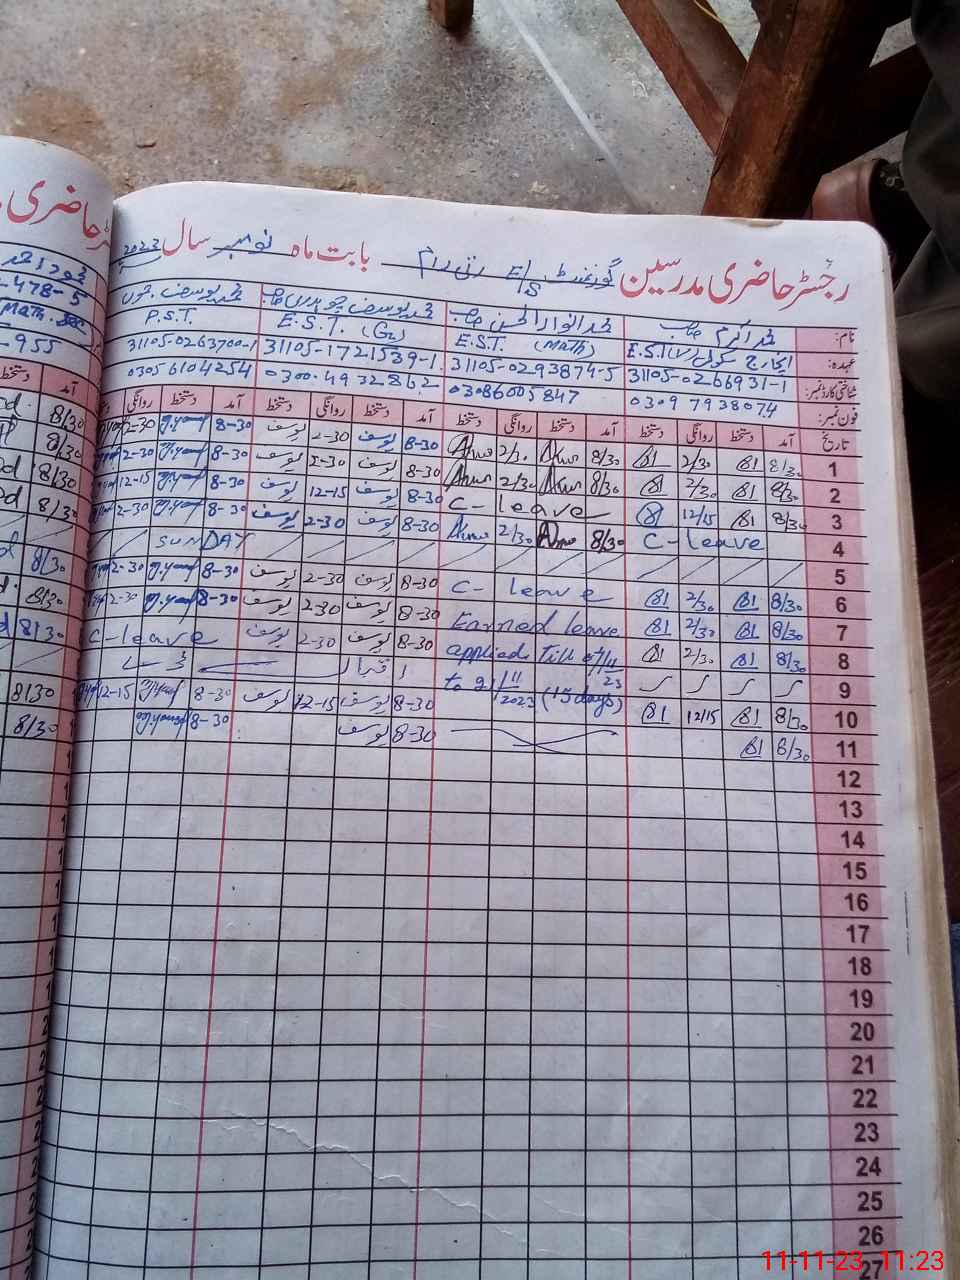 رجسٹر حاضری مدرسین گورنمنٹ E/S رتی رام بابت ماہ نومبر سال 2023
نام: محمد اکرم صاحب محمد انوارالحسن صاحب محمد یوسف چوہدری صاحب محمد یوسف
عہدہ: انچارج E.S.T(V) E.S.T (Math) E.S.T. (Gn) P.S.T.
شناختی کارڈ نمبر: 31105-0266931-1 31105-0293874-5 31105-1721539-1 31105-0263700-1
فون نمبر: 0309 7938074 03086005847 0300-4932862 0305 6104254
تاریخ آمد دستخط روانگی دستخط آمد دستخط روانگی دستخط آمد دستخط روانگی دستخط آمد دستخط روانگی
1 8/30 2/30 8/30 2/30 8-30 یوسف 2-30 یوسف 8-30 2-30
2 8/30 2/30 8/30 2/30 8-30 یوسف 2-30 یوسف 8-30 2-30
3 8/30 12/15 C-leave 8-30 یوسف 12-15 یوسف 8-30 12-15
4 C-leave 8/30 2/30 8-30 یوسف 2-30 یوسف 8-30 2-30
5 SUNDAY
6 8/30 2/30 C-leave 8-30 یوسف 2-30 یوسف 8-30 2-30
7 8/30 2/30 Earned leave 8-30 یوسف 2-30 یوسف 8-30 2-30
8 8/30 2/30 applied. Till 8-30 یوسف 2-30 یوسف C-leave
9 to 21/11/2023 (15 days) اقبال ڈے
10 8/30 12/15 8-30 یوسف 12-15 یوسف 8-30 12-15
11 8/30 8-30 یوسف 8-30
12
13
14
15
16
17
18
19
20
21
22
23
24
25
26
27
حاضری
478-5
Math.
955
آمد
8/30
8/30
8/30
8/30
8/30
8/30
8/30
8/30
8/30
11-11-23 11:23